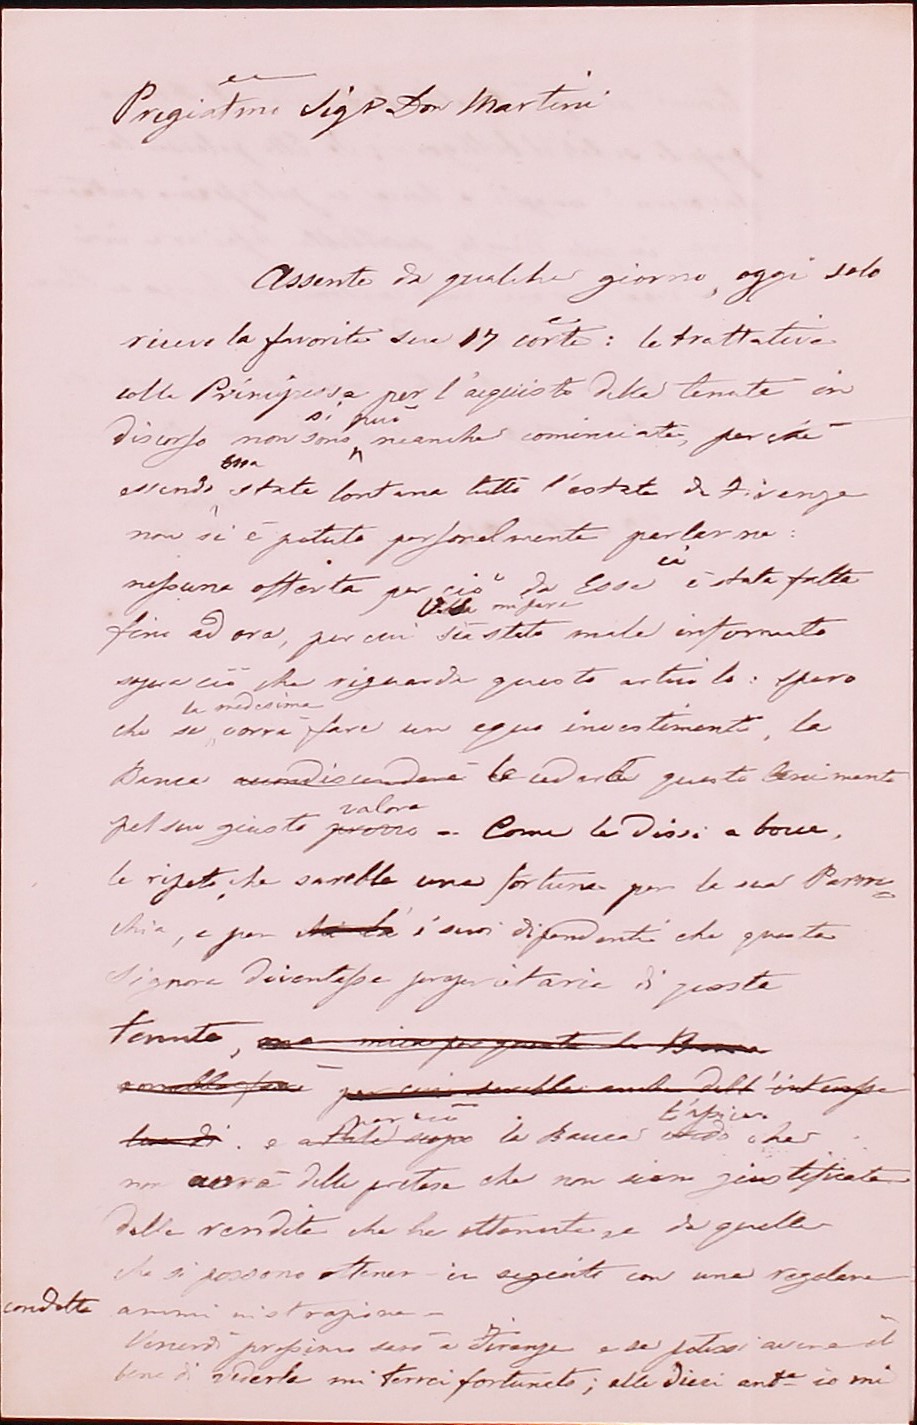 Pregiatmo Sigr Don Martini
Assente da qualche giorno, oggi solo
ricevo la favorita sua 17 corte: le trattative
colla Principessa per l'acquisto della tenuta in
si può
discorso non sono neanche cominciate, perché
Essa
essendo stata lontana tutto l'estate da Firenze
non si è potuto personalmente parlarne:
nessuna offerta per ciò da Essa ci è stata fatta
mi pare
fino ad ora, per cui sia stato male informato
sopra ciò che riguarda questo articolo: spero
la medesima
che se vorrà fare un equo investimento, la
Banca accondiscenderà cederle questo
valore
pel suo giusto prezzo - Come le dissi a voce,
le ripeto che sarebbe una fortuna per la sua Parroc=
chia, e per i suoi dipendenti che questa
Signora diventasse proprietaria di questa
tenuta, per questo la Banca
sarebbe per cui sarebbe anche dell'interesse
perciò
. e a tale scopo la Banca credo che
non avrà delle pretese che non siano giustificate
dalle rendite che ha ottenute, e da quelle
che si possono ottenere in seguito con una regolare
condotta amministrazione -
Venerdì prossimo sarò a Firenze e se potessi avere il
bene di vederla mi terrei fortunato; alle dieci ante io mi